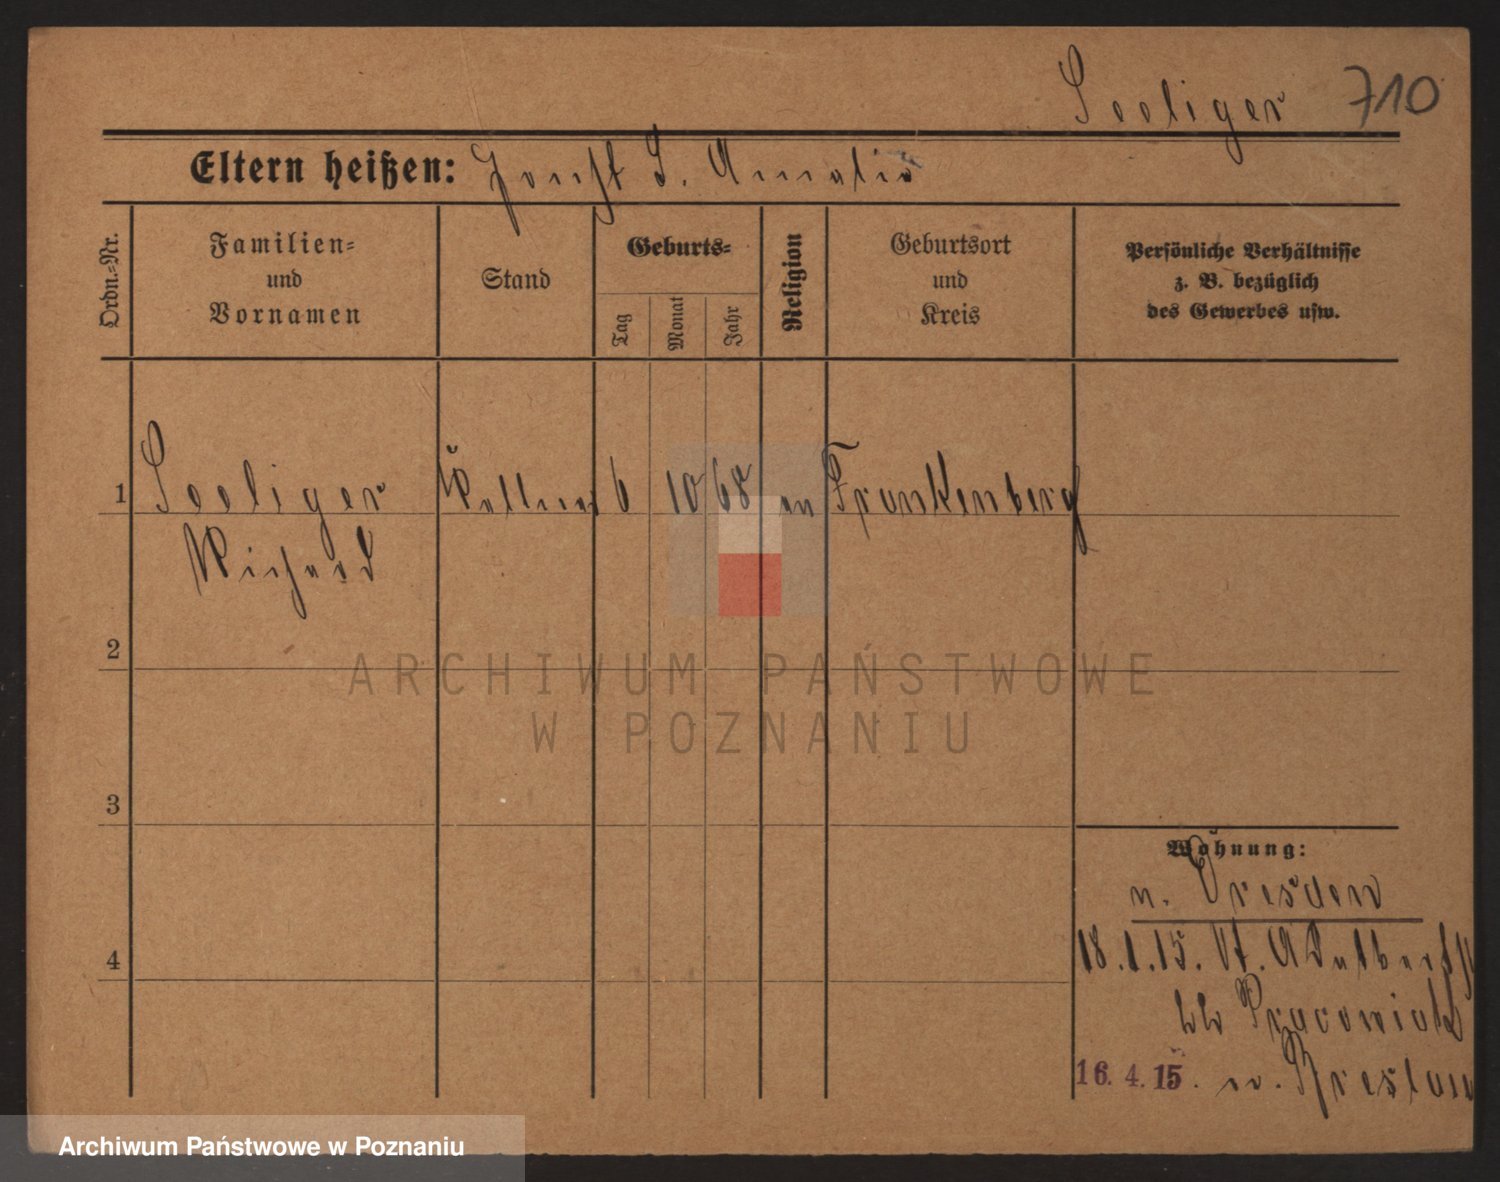 Seeliger 710
Eltern heißen: Joseph S. Amalie
Ordn.=Nr.
Familien=
und
Vornamen
Stand
Geburts=
Tag
Monat
Jahr
Religion
Geburtsort
und
Kreis
Persönliche Verhältnisse
z. B. bezüglich
des Gewerbes usw.
1 Seeliger Kellner 6 10 68 ev Frankenberg
Richard
2
3
4
ARCHIWUM PAŃSTWOWE
W POZNANIU
Wohnung:
n. Dresden
18.1.15. St. Adalbertst
bb
16.4.15. n. Breslau
Archiwum Państwowe w Poznaniu